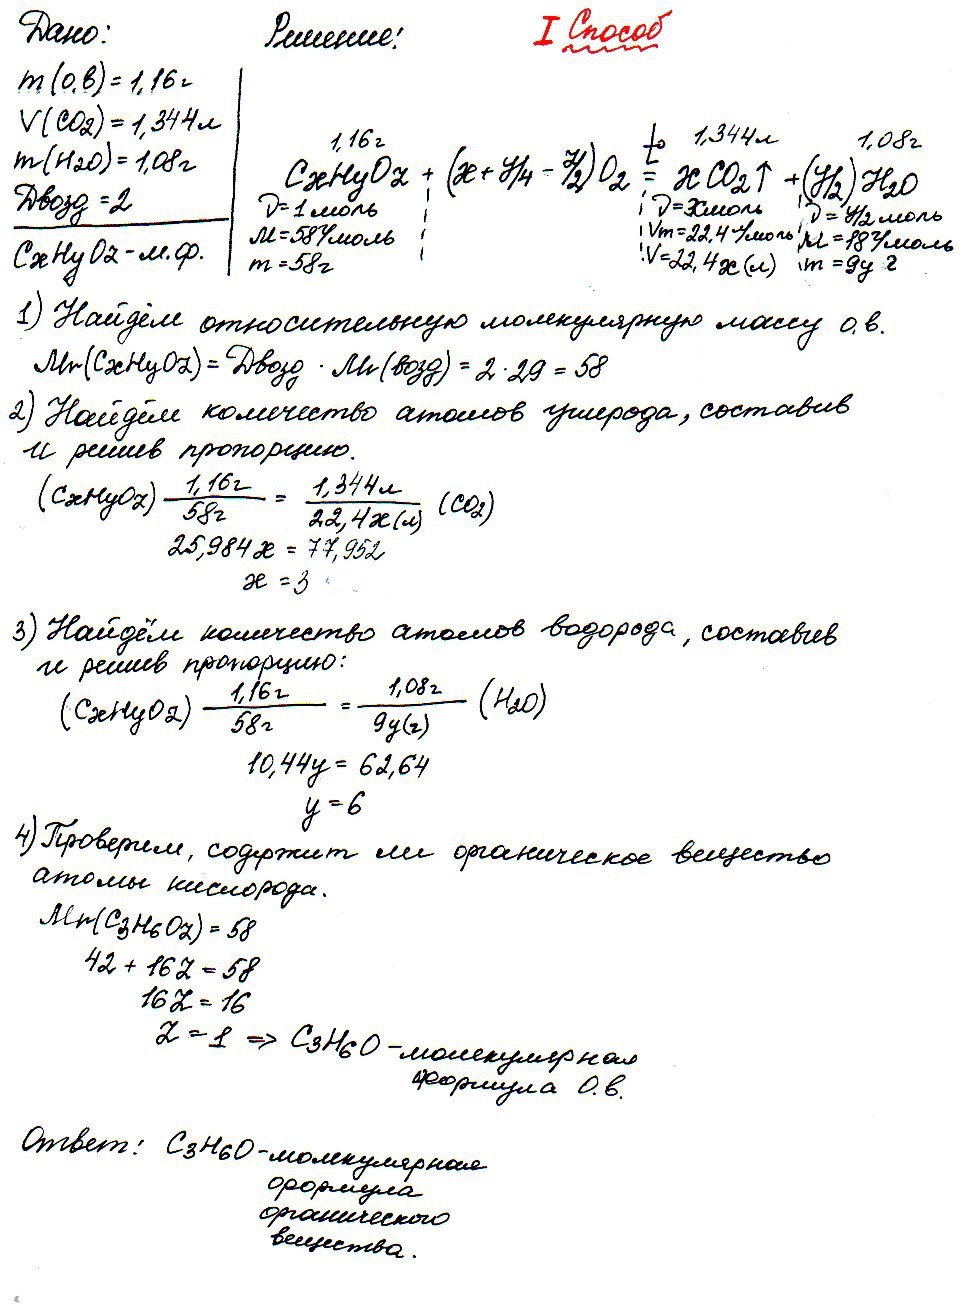 Дано: Решение: I Способ
m(о.в) = 1,16г
V(CO2) = 1,344л
m(H2O) = 1,08г
Двозд = 2
CxHyOz - м.ф.
1,16г t° 1,344л 1,08г
CxHyOz + (x + y/4 - z/2) O2 = x CO2↑ + (y/2) H2O
ν = 1 моль ν = x моль ν = y/2 моль
M = 58 г/моль Vm = 22,4 л/моль M = 18 г/моль
m = 58г V = 22,4x (л) m = 9y г
1) Найдём относительную молекулярную массу о.в.
Mr(CxHyOz) = Двозд · Mr(возд) = 2 · 29 = 58
2) Найдём количество атомов углерода, составив
и решив пропорцию.
(CxHyOz) 1,16г/58г = 1,344л/22,4x(л) (CO2)
25,984x = 77,952
x = 3
3) Найдём количество атомов водорода, составив
и решив пропорцию:
(CxHyOz) 1,16г/58г = 1,08г/9y(г) (H2O)
10,44y = 62,64
y = 6
4) Проверим, содержит ли органическое вещество
атомы кислорода.
Mr(C3H6Oz) = 58
42 + 16z = 58
16z = 16
z = 1 => C3H6O - молекулярная
формула о.в.
Ответ: C3H6O - молекулярная
формула
органического
вещества.